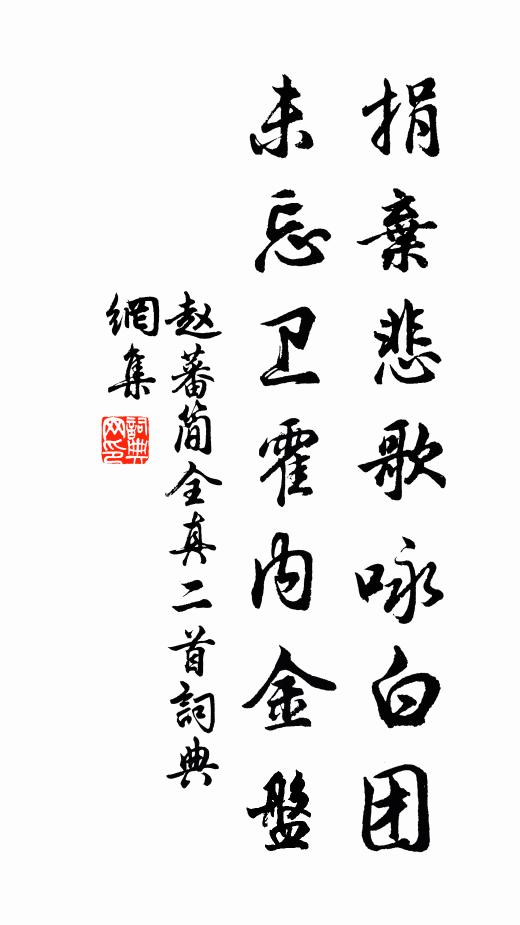 捐棄悲歌咏白团
未忘卫霍内金盤
赵蕃简全真二首詞典
網集
詞典
网印